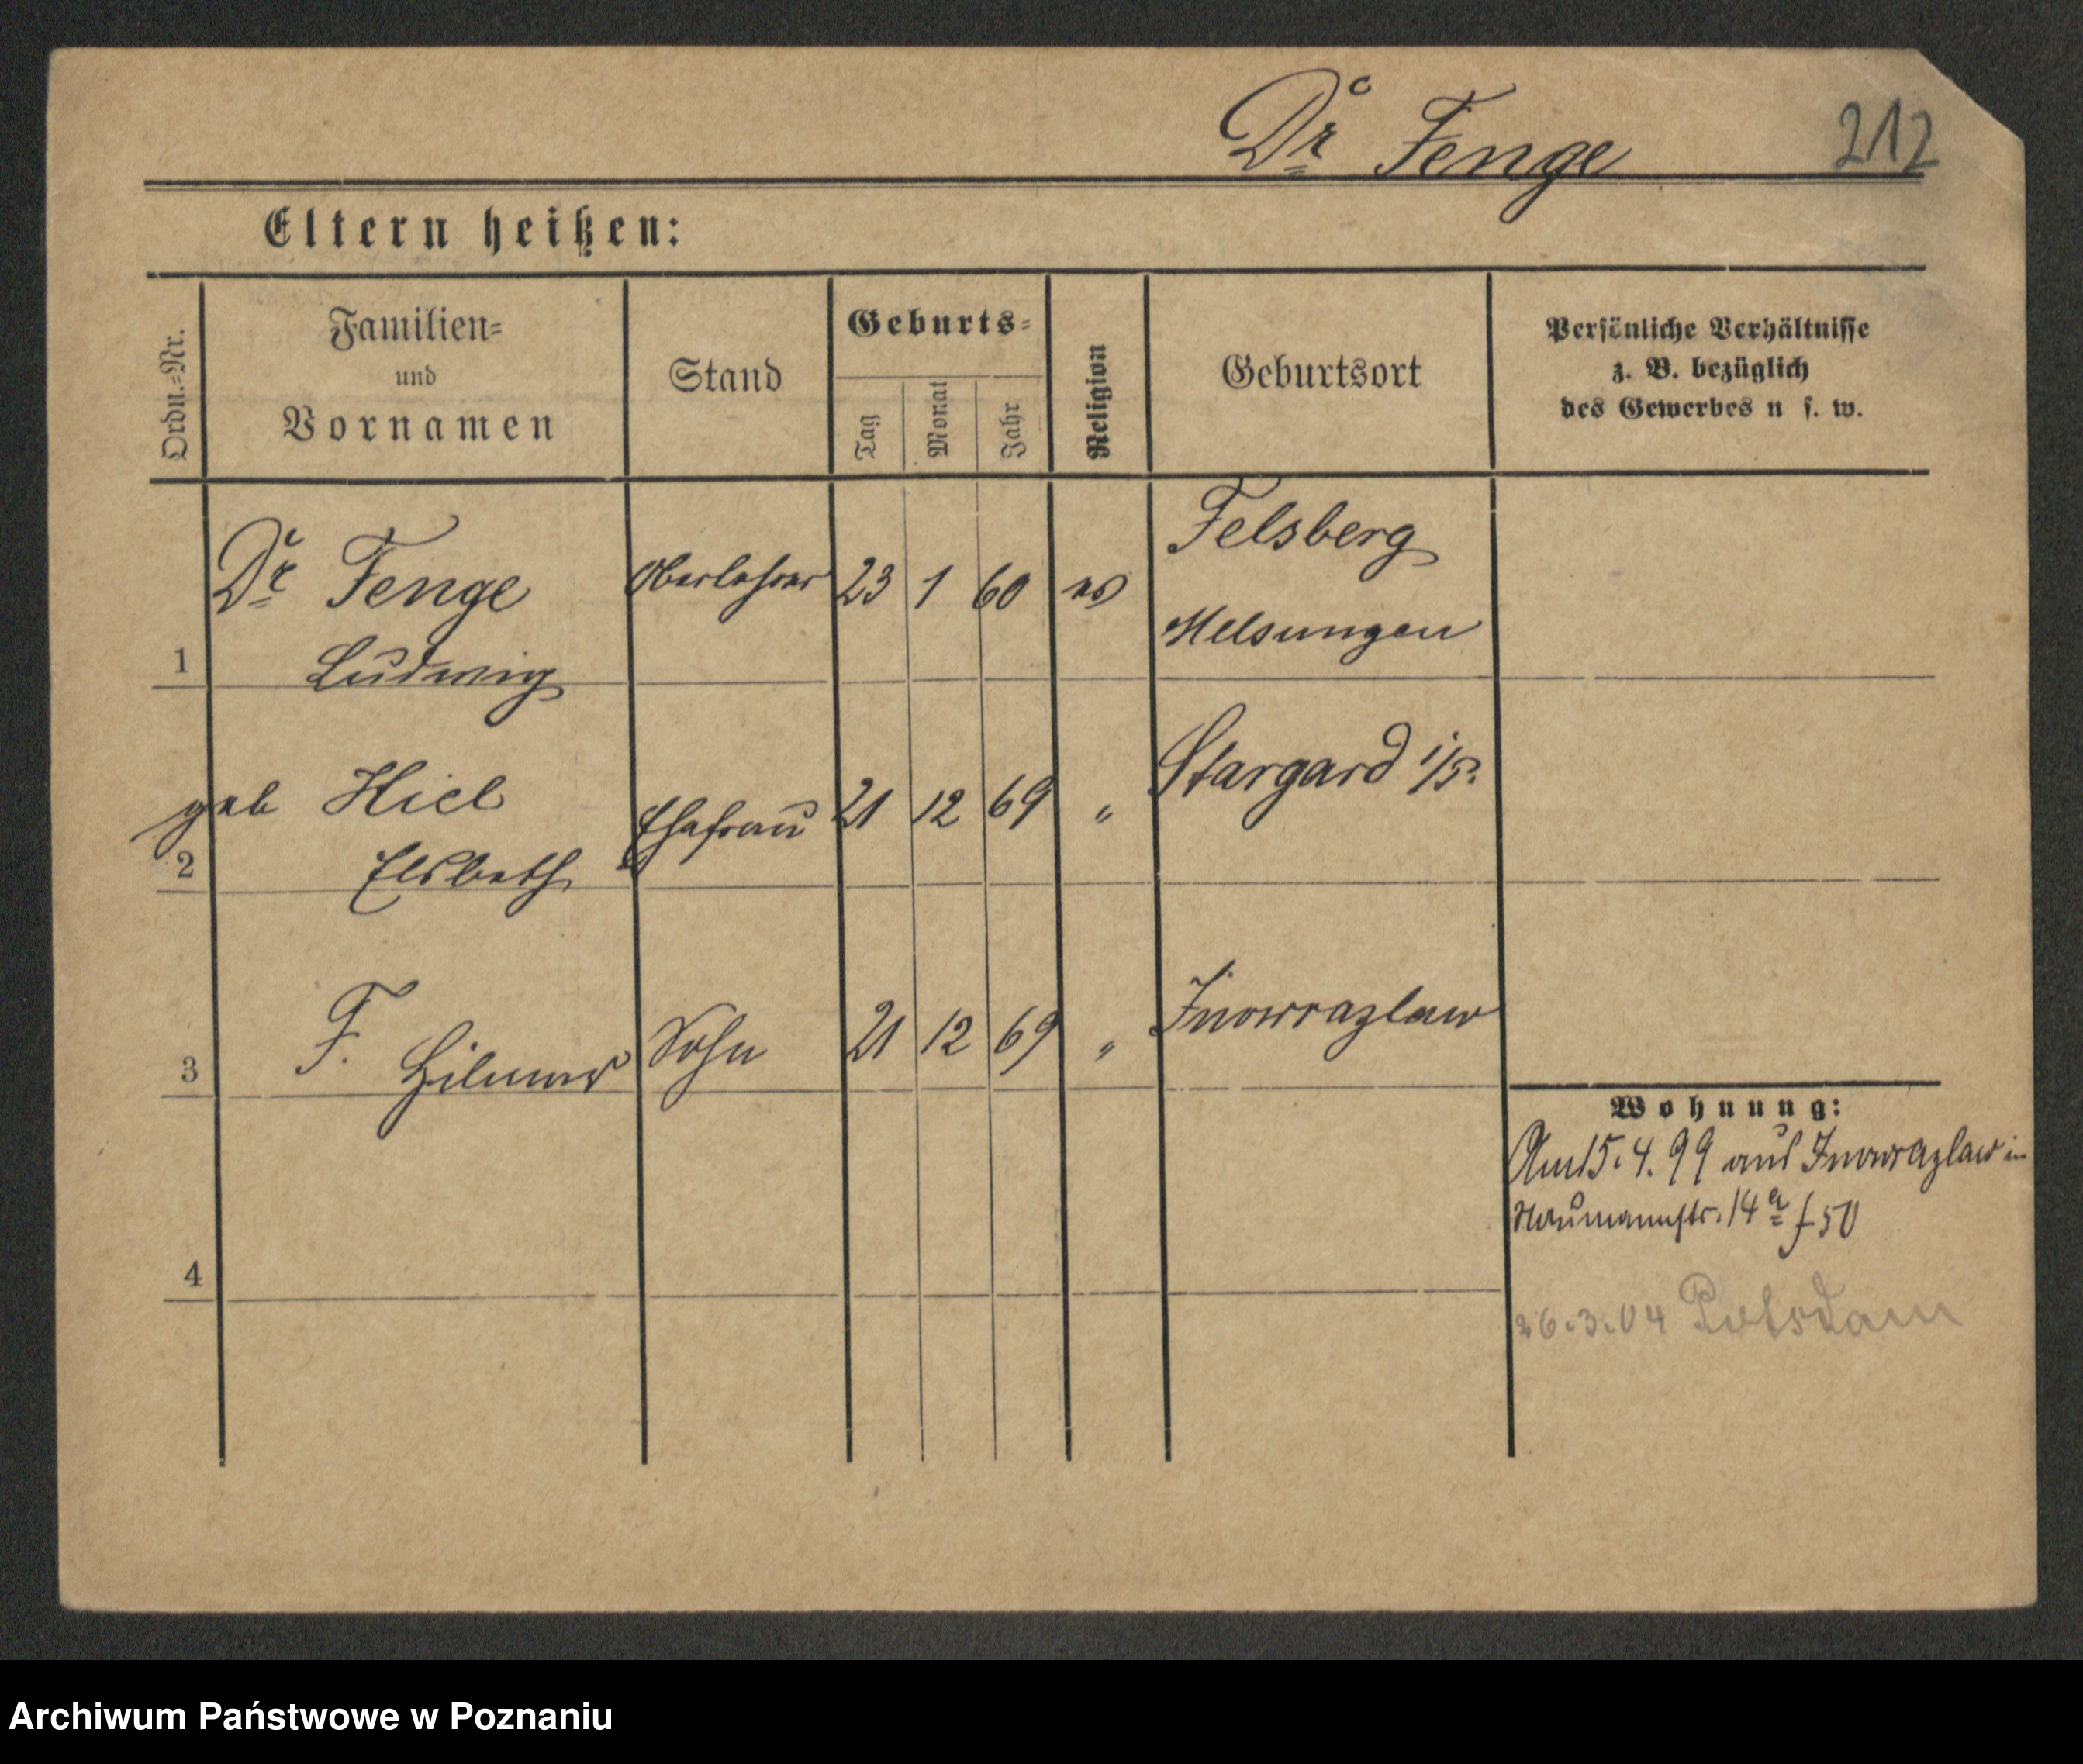 Dr Fenge 212
Eltern heißen:
Ordn.=Nr.
Familien=
und
Vornamen
Stand
Geburts=
Tag
Monat
Jahr
Religion
Geburtsort
Persönliche Verhältnisse
z. B. bezüglich
des Gewerbes u s. w.
1 Dr Fenge Oberlehrer 23 1 60 ev Felsberg
Ludwig Melsungen
2 geb Hiel Ehefrau 21 12 69 " Stargard i/P.
Elsbeth
3 F. Hilmar Sohn 21 12 69 " Inowrazlaw
4
Wohnung:
Am 15.4.99 aus Inowrazlaw in
Naumannstr. 14a f 50
26.3.04 Potsdam
Archiwum Państwowe w Poznaniu